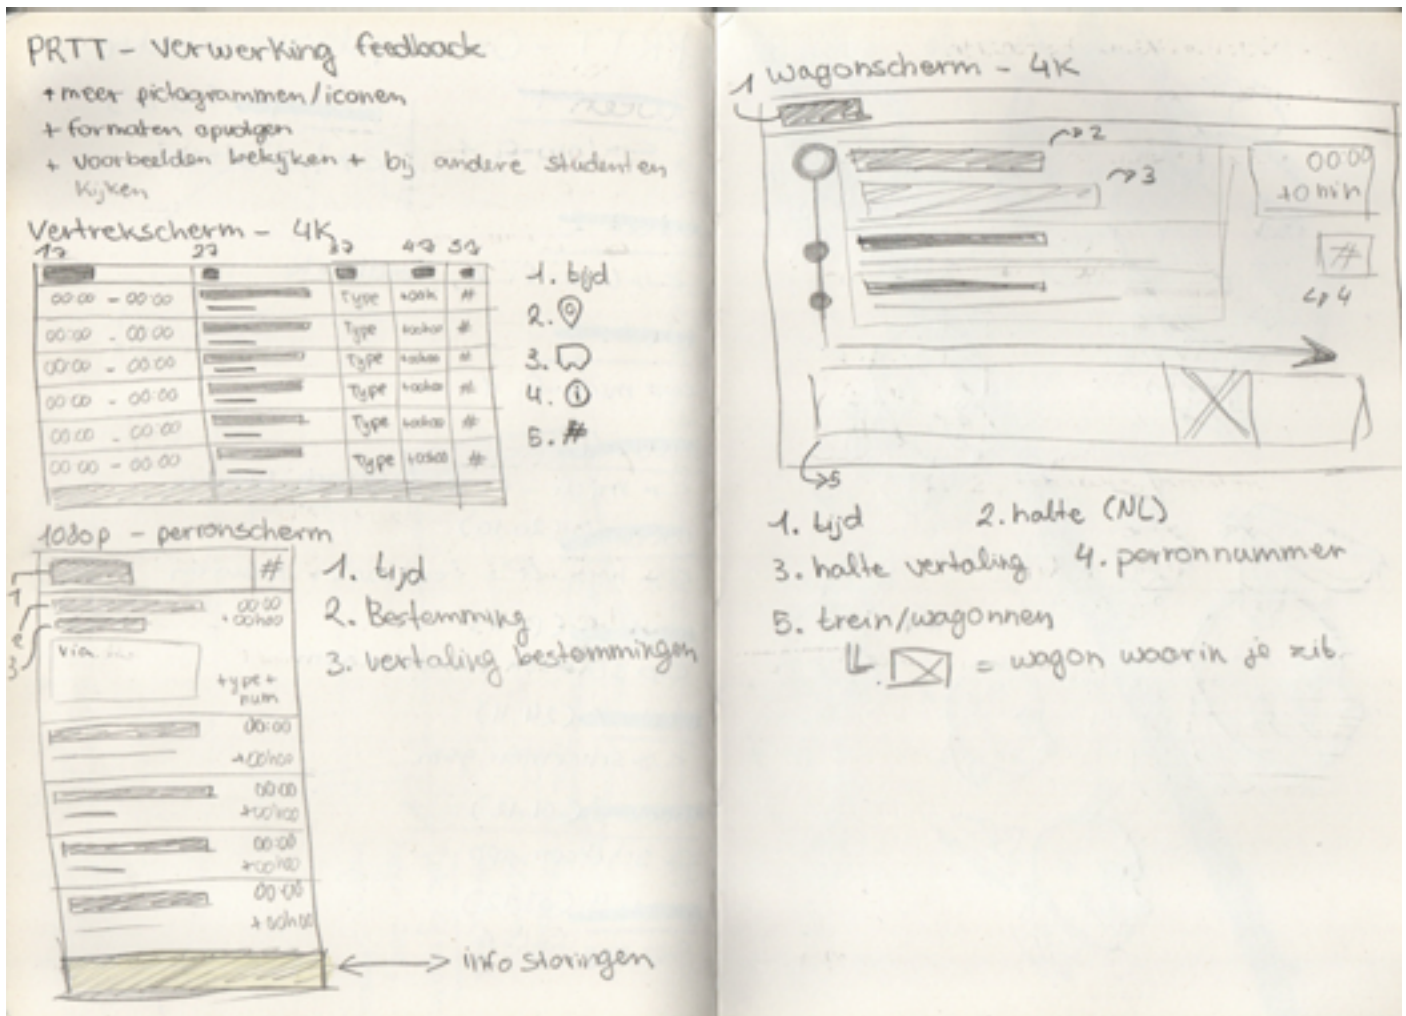 PRTT - verwerking feedback
+ meer pictogrammen/iconen
+ formaten opvolgen
+ voorbeelden bekijken + bij andere studenten
kijken
Vertrekscherm - 4K
1 2 3 4 5
00:00 - 00:00 Type +00h #
00:00 - 00:00 Type +00h00 #
00:00 - 00:00 Type +00h00 #
00:00 - 00:00 Type +00h00 #
00:00 - 00:00 Type +00h00 #
00:00 - 00:00 Type +00h00 #
1. tijd
2.
3.
4. i
5. #
1080p - perronscherm
#
1
2
3
00:00
+00h00
via
+type+
num
00:00
+00h00
00:00
+00h00
00:00
+00h00
00:00
+00h00
1. tijd
2. Bestemming
3. vertaling bestemmingen
info storingen
wagonscherm - 4K
1
2
3
00:00
+0 min
#
4
5
1. tijd 2. halte (NL)
3. halte vertaling 4. perronnummer
5. trein/wagonnen
= wagon waarin je zit